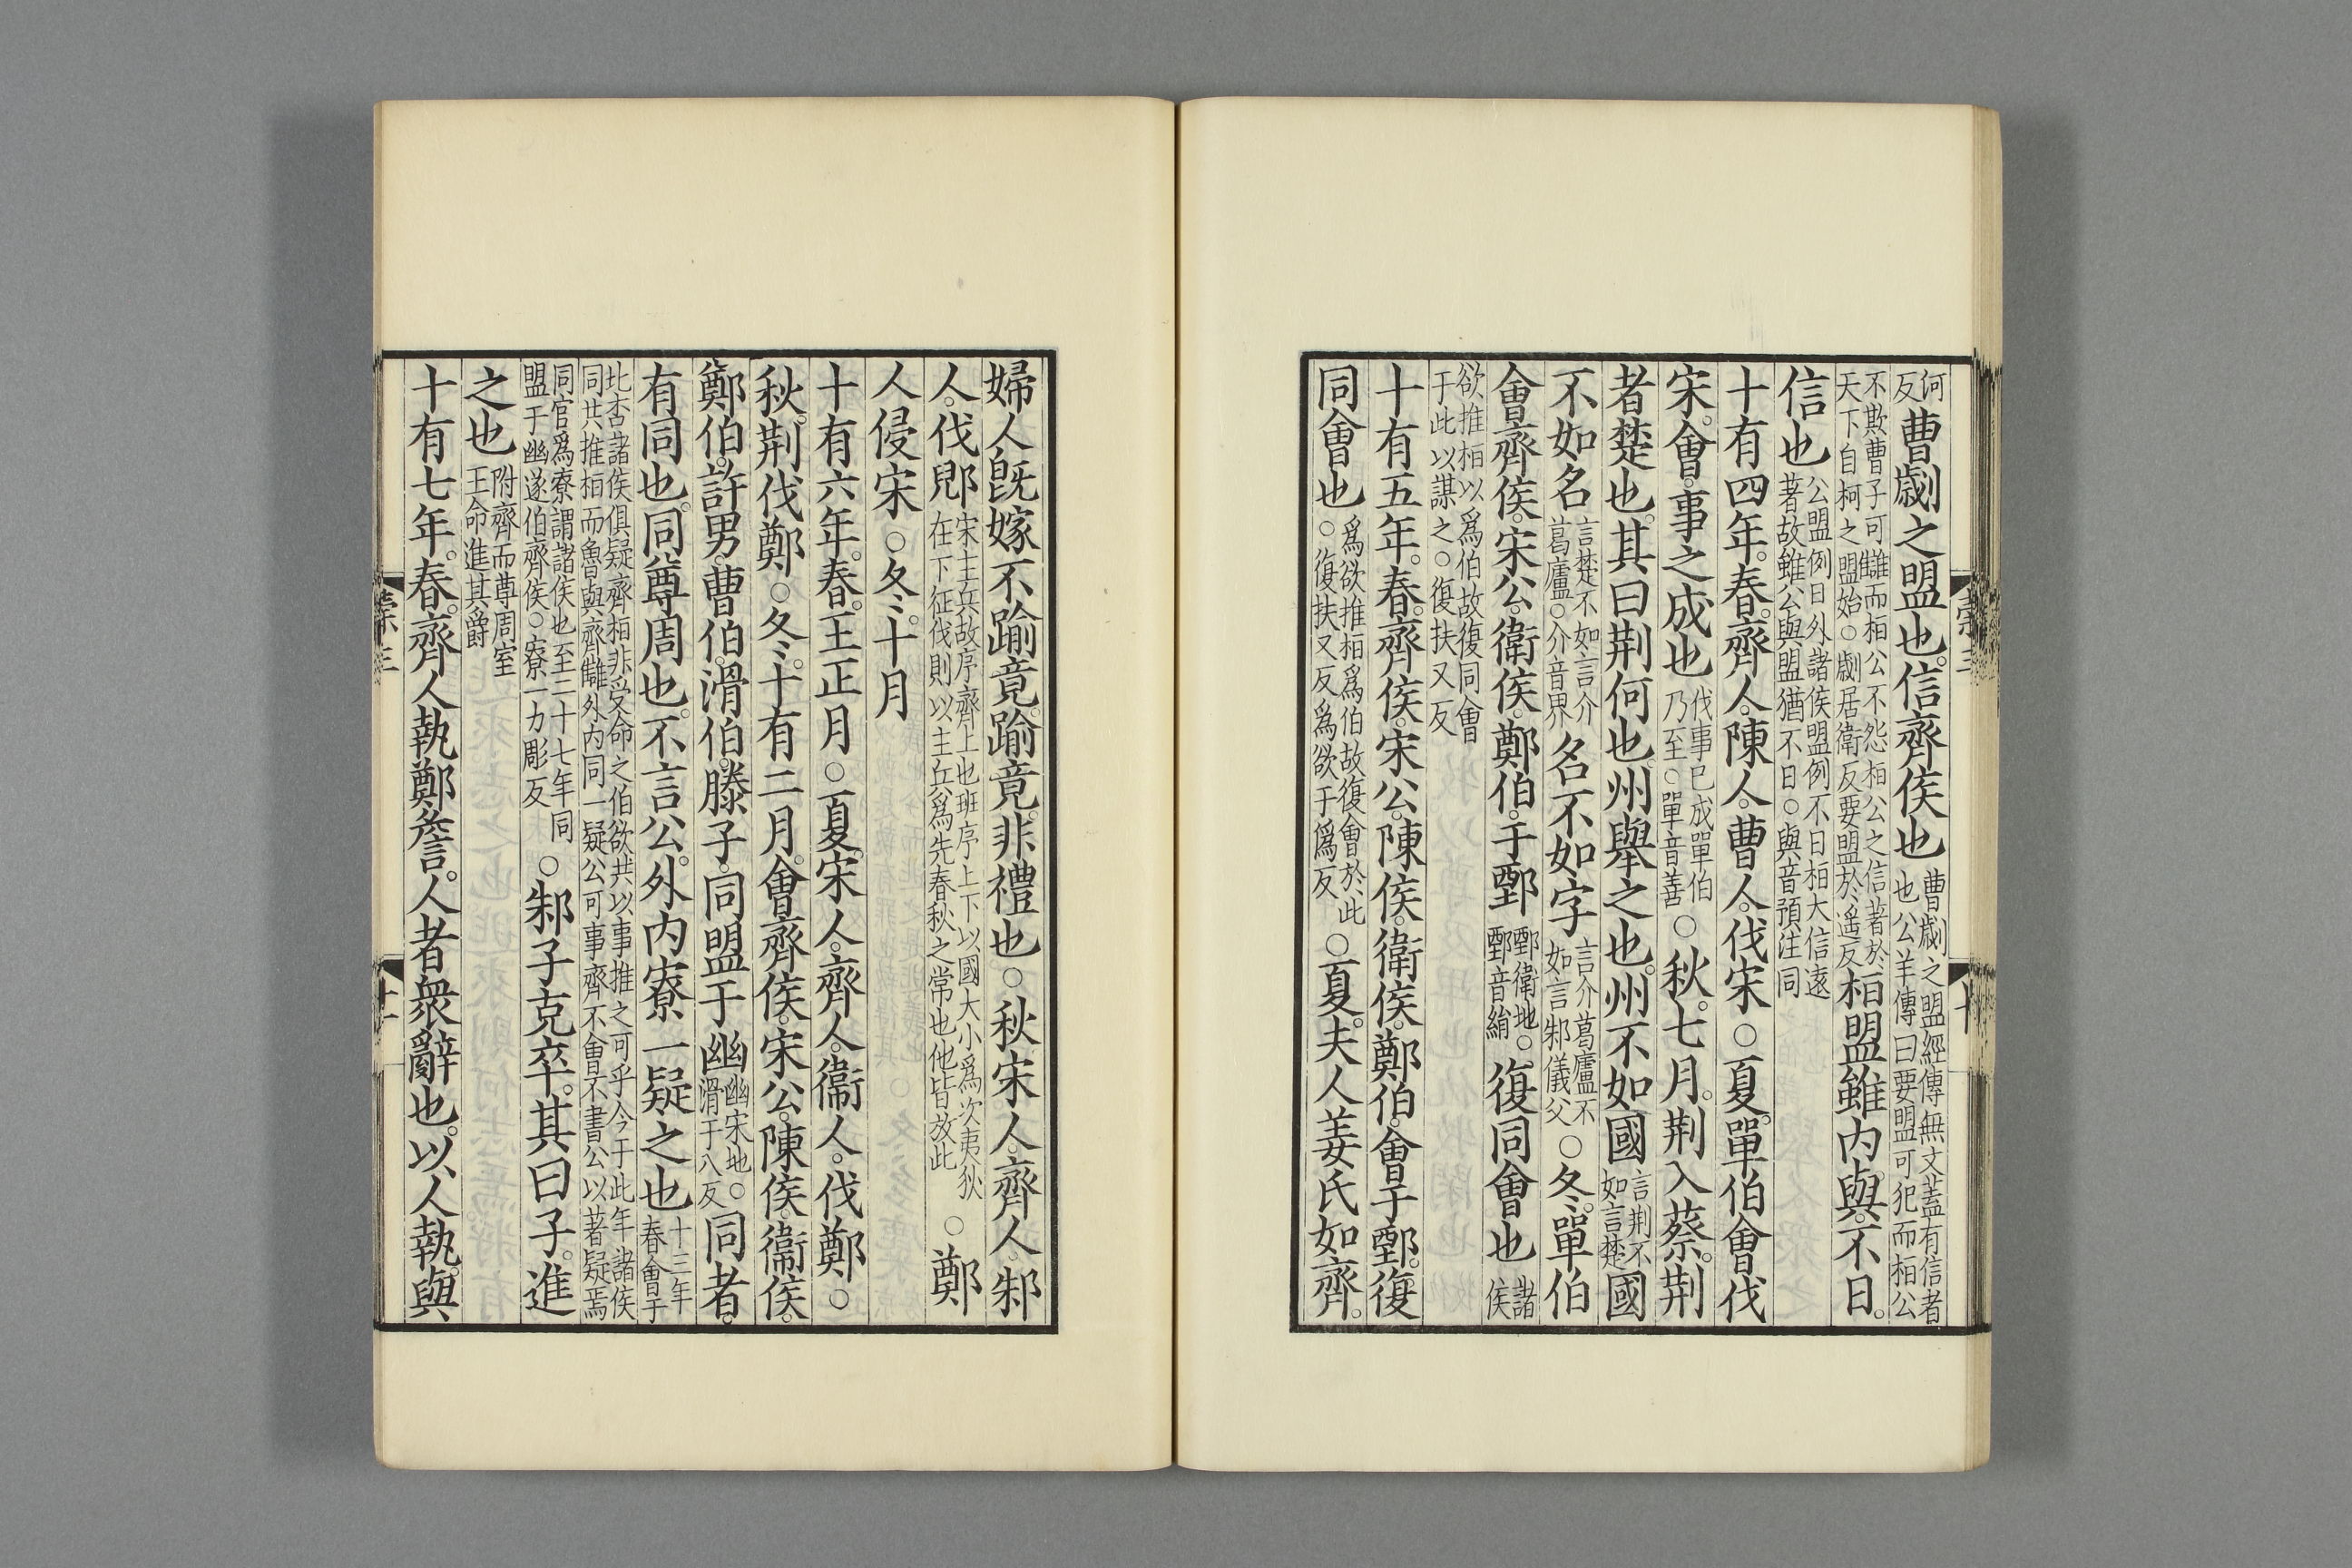 何反曹劌之盟也。信齊侯也曹劌之盟經傳無文蓋有信者也公羊傳曰要盟可犯而桓公
不欺曹子可讎而桓公不怨桓公之信著於天下自柯之盟始○劌居衛反要盟於遥反桓盟雖内與。不日。
信也公盟例日外諸侯盟例不日桓大信遠著故雖公與盟猶不日○與音預注同
十有四年。春。齊人。陳人。曹人。伐宋○夏。單伯會伐
宋。會。事之成也伐事已成單伯乃至○單音善○秋。七月。荆入蔡。荆
者楚也。其曰荆何也。州舉之也。州不如國言荆不如言楚國
不如名言楚不如言介葛廬○介音界名不如字言介葛廬不如言邾儀父○冬。單伯
會齊侯。宋公。衛侯。鄭伯。于鄄鄄衛地○鄄音絹復同會也諸侯
欲推桓以爲伯故復同會于此以謀之○復扶又反
十有五年。春。齊侯。宋公。陳侯。衛侯。鄭伯。會于鄄。復
同會也爲欲推桓爲伯故復會於此○復扶又反爲欲于僞反○夏。夫人姜氏如齊。
婦人旣嫁不踰竟。踰竟。非禮也○秋宋人。齊人。邾
人。伐郳宋主兵故序齊上也班序上下以國大小爲次夷狄在下征伐則以主兵爲先春秋之常也他皆放此○鄭
人侵宋○冬。十月
十有六年。春。王正月○夏。宋人。齊人。衞人。伐鄭○
秋。荆伐鄭○冬。十有二月。會齊侯。宋公。陳侯。衞侯。
鄭伯。許男。曹伯。滑伯。滕子。同盟于幽幽宋地○滑于八反同者。
有同也。同尊周也。不言公。外内寮一疑之也十三年春會于
北杏諸侯俱疑齊桓非受命之伯欲共以事推之可乎今于此年諸侯同共推桓而魯與齊讎外内同一疑公可事齊不會不書公以著疑焉
同官爲寮謂諸侯也至二十七年同盟于幽遂伯齊侯○寮一力彫反○邾子克卒。其曰子。進
之也附齊而尊周室王命進其爵
十有七年。春。齊人執鄭詹。人者衆辭也。以人執。與